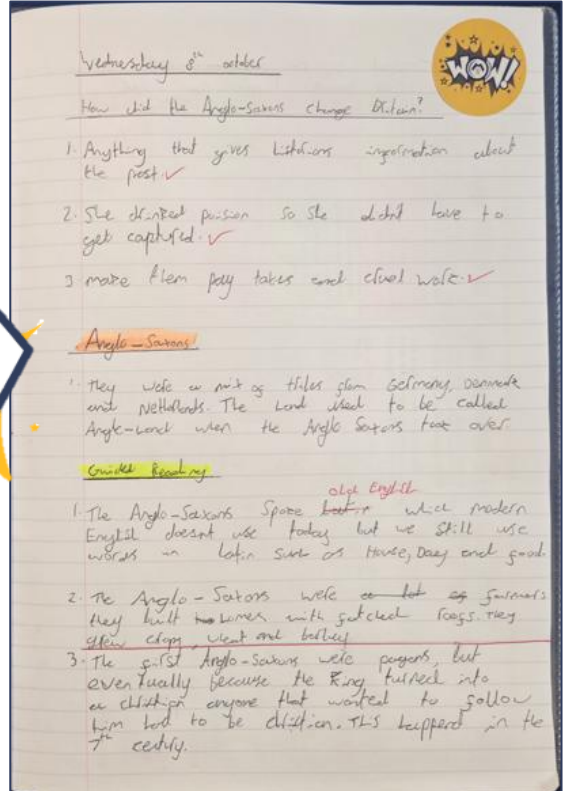 WOW!
Wednesday 8th october
How did the Anglo-Saxons change Britain?
1. Anything that gives historians information about
the past.
2. She drinked poision so she didnt have to
get captured.
3 make them pay taxes and cruel work.
Anglo-Saxons
1. They were a mix of tribes from Germany, Denmark
and Netherlands. The Land used to be called
Angle-Land when the Anglo Saxons took over
Guided Reading
old English
1. The Anglo-Saxons Spoke Latin which modern
English doesnt use today but we still use
words in latin such as House, Day and food.
2. The Anglo-Saxons were a lot of farmers
they built homes with fatched roofs. They
grew crops, wheat and barley
3. The first Anglo-Saxons were pagens, but
eventually because the King turned into
a christian anyone that wanted to follow
him had to be christian. This happend in the
7th century.